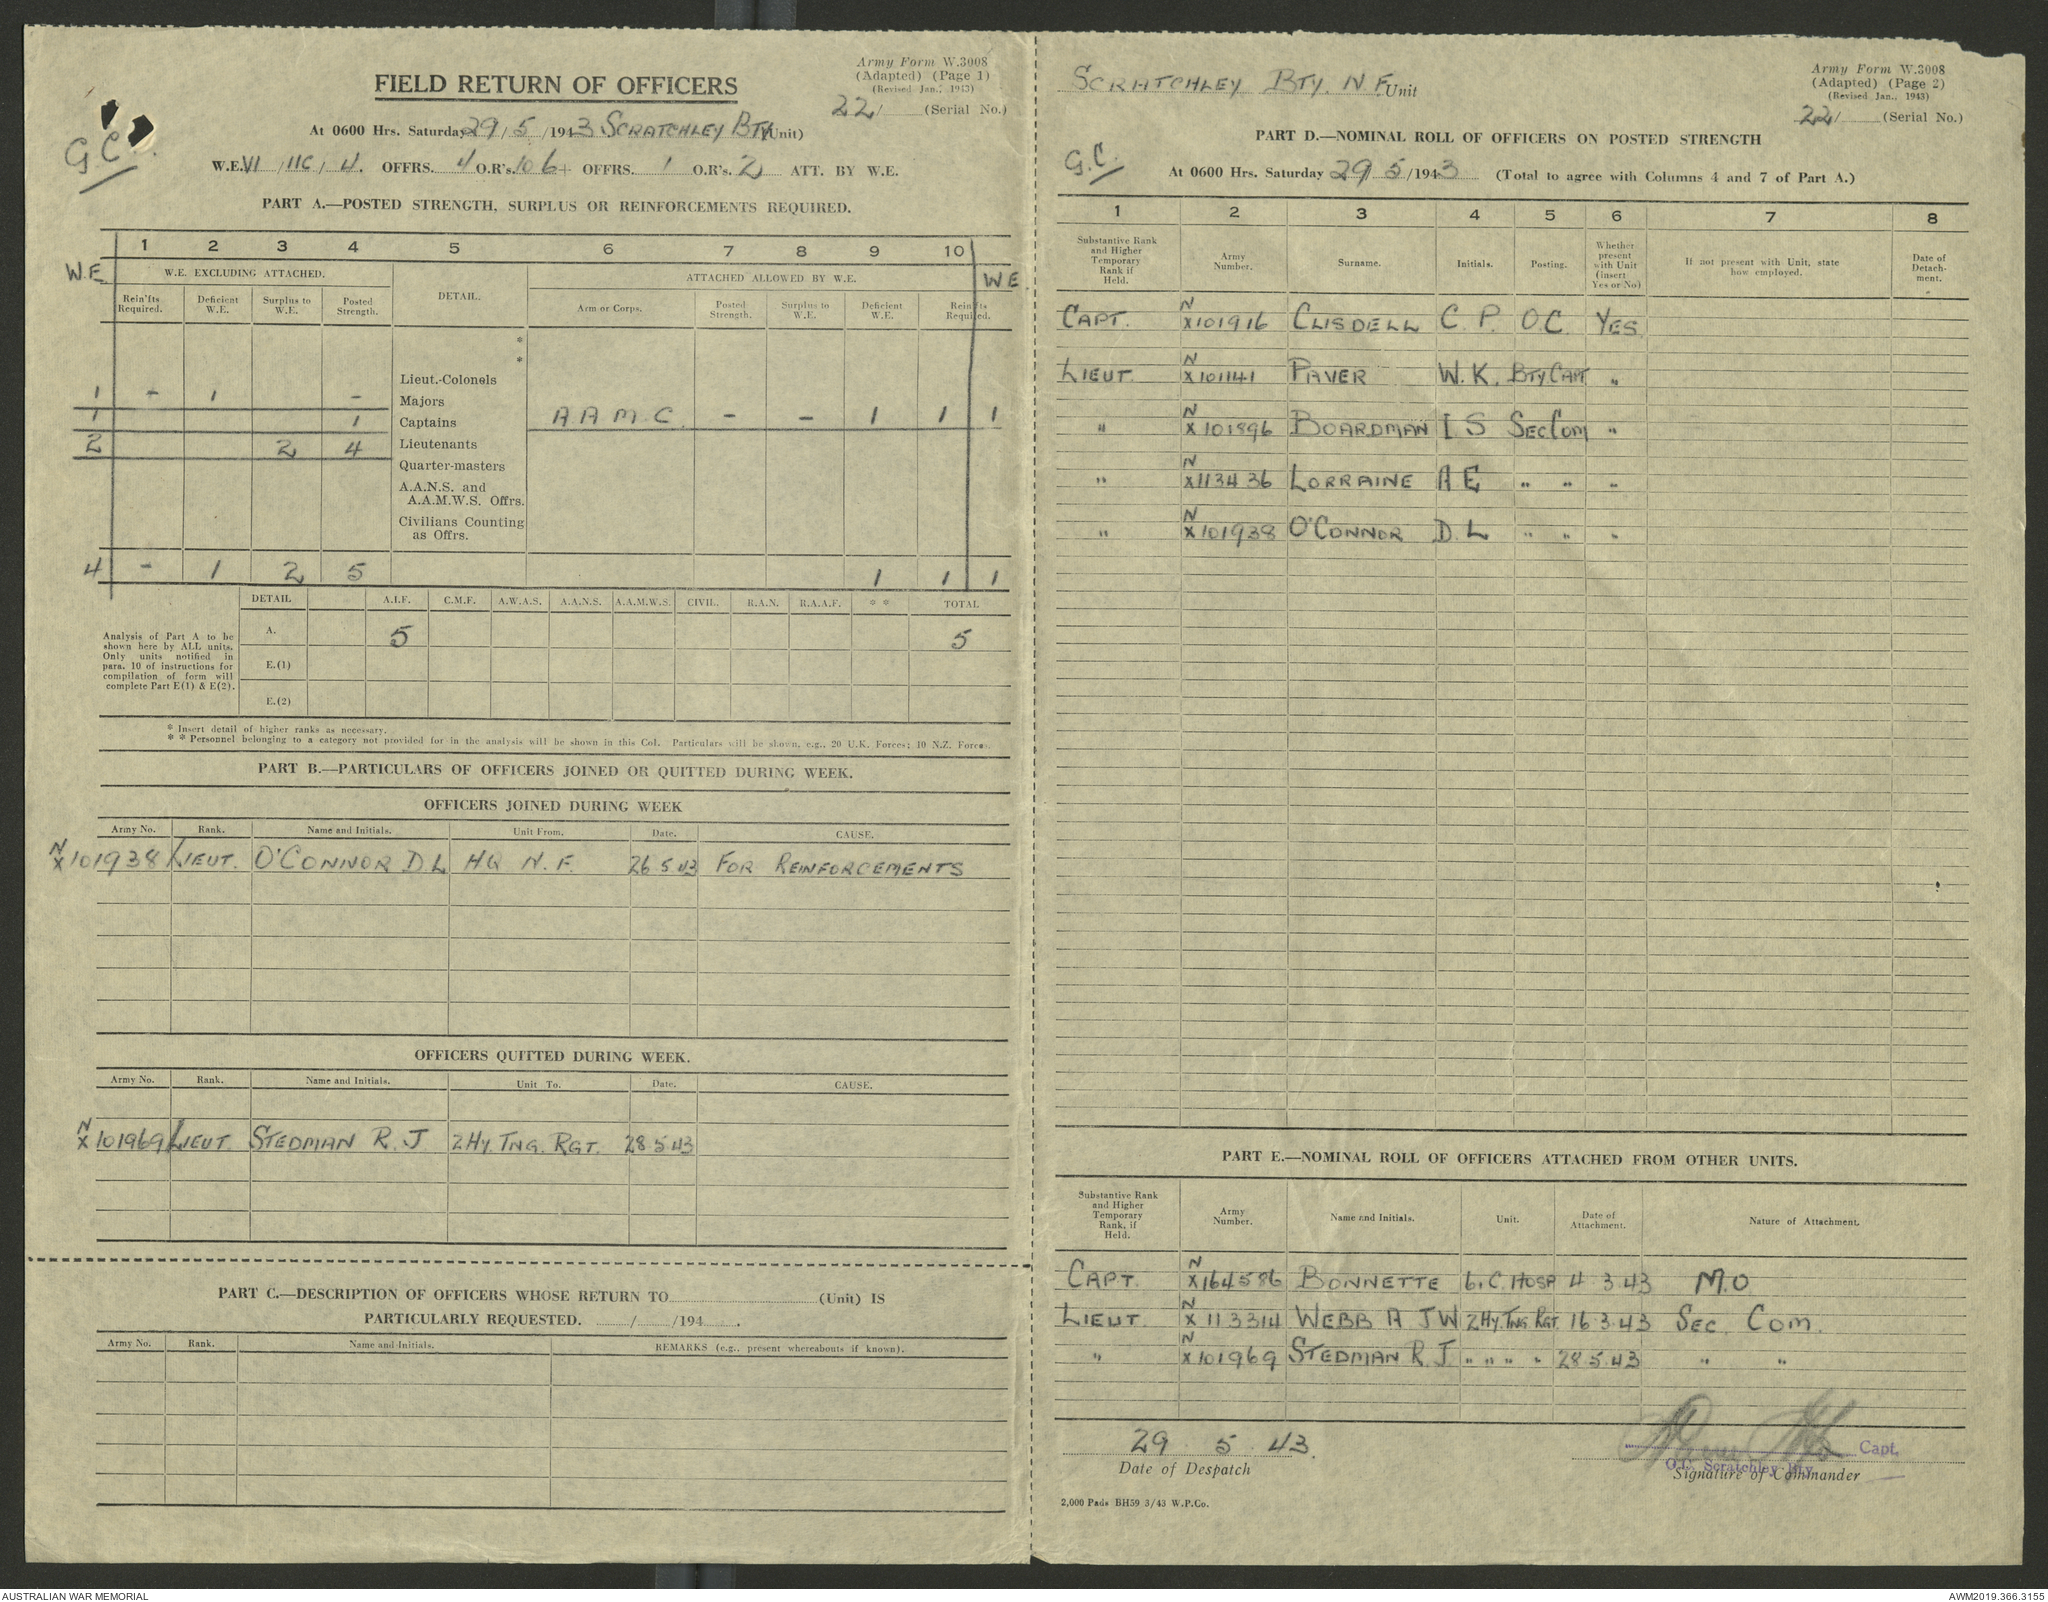 Army Form W.3008
(Adapted) (Page 1)
(Revised Jan., 1943)
FIELD RETURN OF OFFICERS
22/ (Serial No.)
G.C.
At 0600 Hrs. Saturday 29/5/1943 SCRATCHLEY BTY (Unit)
W.E. VI /11C/ 4. OFFRS. 4 O.R's. 106 + OFFRS. 1 O.R's. 2 ATT. BY W.E.
PART A.—POSTED STRENGTH, SURPLUS OR REINFORCEMENTS REQUIRED.
1 2 3 4 5 6 7 8 9 10
W.E W.E. EXCLUDING ATTACHED. DETAIL. ATTACHED ALLOWED BY W.E. W E
Rein'fts Required. Deficient W.E. Surplus to W.E. Posted Strength. Arm or Corps. Posted Strength. Surplus to W.E. Deficient W.E. Rein'fts Required.
*
*
Lieut.-Colonels
1 - 1 - Majors
1 1 Captains A A M C - - 1 1 1
2 2 4 Lieutenants
Quarter-masters
A.A.N.S. and
A.A.M.W.S. Offrs.
Civilians Counting
as Offrs.
4 - 1 2 5 1 1 1
DETAIL A.I.F. C.M.F. A.W.A.S. A.A.N.S. A.A.M.W.S. CIVIL. R.A.N. R.A.A.F. * * TOTAL
Analysis of Part A to be
shown here by ALL units.
Only units notified in
para. 10 of instructions for
compilation of form will
complete Part E(1) & E(2).
A. 5 5
E.(1)
E.(2)
* Insert detail of higher ranks as necessary.
* * Personnel belonging to a category not provided for in the analysis will be shown in this Col. Particulars will be shown, e.g., 20 U.K. Forces; 10 N.Z. Forces.
PART B.—PARTICULARS OF OFFICERS JOINED OR QUITTED DURING WEEK.
OFFICERS JOINED DURING WEEK
Army No. Rank. Name and Initials. Unit From. Date. CAUSE.
NX101938 LIEUT. O'CONNOR D.L HQ N.F. 26 5 43 FOR REINFORCEMENTS
OFFICERS QUITTED DURING WEEK.
Army No. Rank. Name and Initials. Unit To. Date. CAUSE.
NX101969 LIEUT STEDMAN R. J 2 HY. TNG. RGT. 28 5 43
PART C.—DESCRIPTION OF OFFICERS WHOSE RETURN TO (Unit) IS
PARTICULARLY REQUESTED. / /194 .
Army No. Rank. Name and Initials. REMARKS (e.g., present whereabouts if known).
SCRATCHLEY BTY. N F. Unit
Army Form W.3008
(Adapted) (Page 2)
(Revised Jan., 1943)
22/ (Serial No.)
PART D.—NOMINAL ROLL OF OFFICERS ON POSTED STRENGTH
G.C.
At 0600 Hrs. Saturday 29 5/1943 (Total to agree with Columns 4 and 7 of Part A.)
1 2 3 4 5 6 7 8
Substantive Rank and Higher Temporary Rank if Held. Army Number. Surname. Initials. Posting. Whether present with Unit (insert Yes or No) If not present with Unit, state how employed. Date of Detachment.
CAPT. NX101916 CLISDELL C. P. O.C. YES
LIEUT. NX101141 PAVER W. K. BTY. CAPT "
" NX101896 BOARDMAN I S SEC COM "
" NX113436 LORRAINE A E " " "
" NX101938 O'CONNOR D. L " " "
PART E.—NOMINAL ROLL OF OFFICERS ATTACHED FROM OTHER UNITS.
Substantive Rank and Higher Temporary Rank, if Held. Army Number. Name and Initials. Unit. Date of Attachment. Nature of Attachment.
CAPT. NX164586 BONNETTE 6. C. HOSP 4 3.43 M.O
LIEUT. NX113314 WEBB A J W 2 HY. TNG. RGT. 16 3.43 SEC. COM.
" NX101969 STEDMAN R. J " " " " 28 5 43 " "
29 5 43.
Date of Despatch
Capt.
O.C. Scratchley Bty.
Signature of Commander
2,000 Pads BH59 3/43 W.P.Co.
AUSTRALIAN WAR MEMORIAL
AWM2019.366.3155